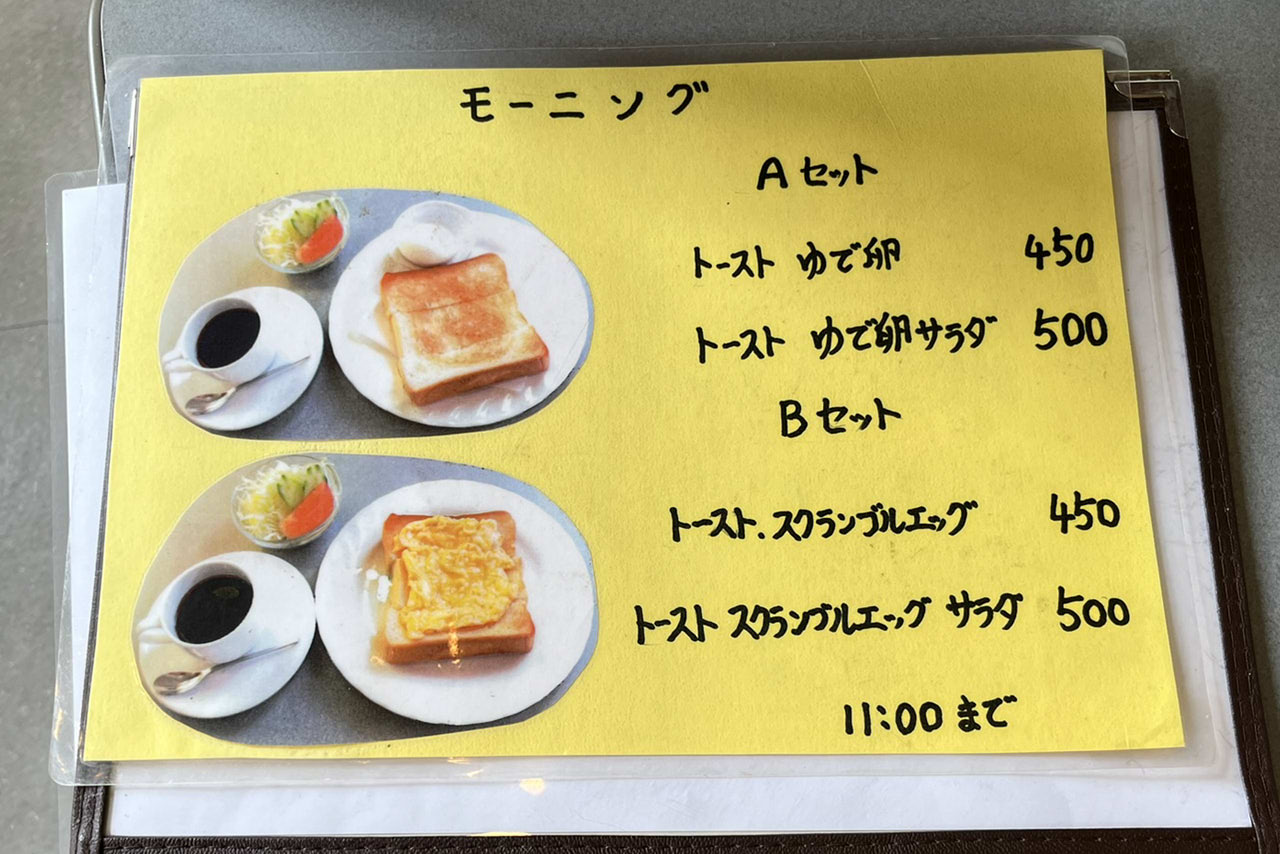 モーニング
Aセット
トースト ゆで卵 450
トースト ゆで卵サラダ 500
Bセット
トースト.スクランブルエッグ 450
トースト スクランブルエッグ サラダ 500
11:00まで